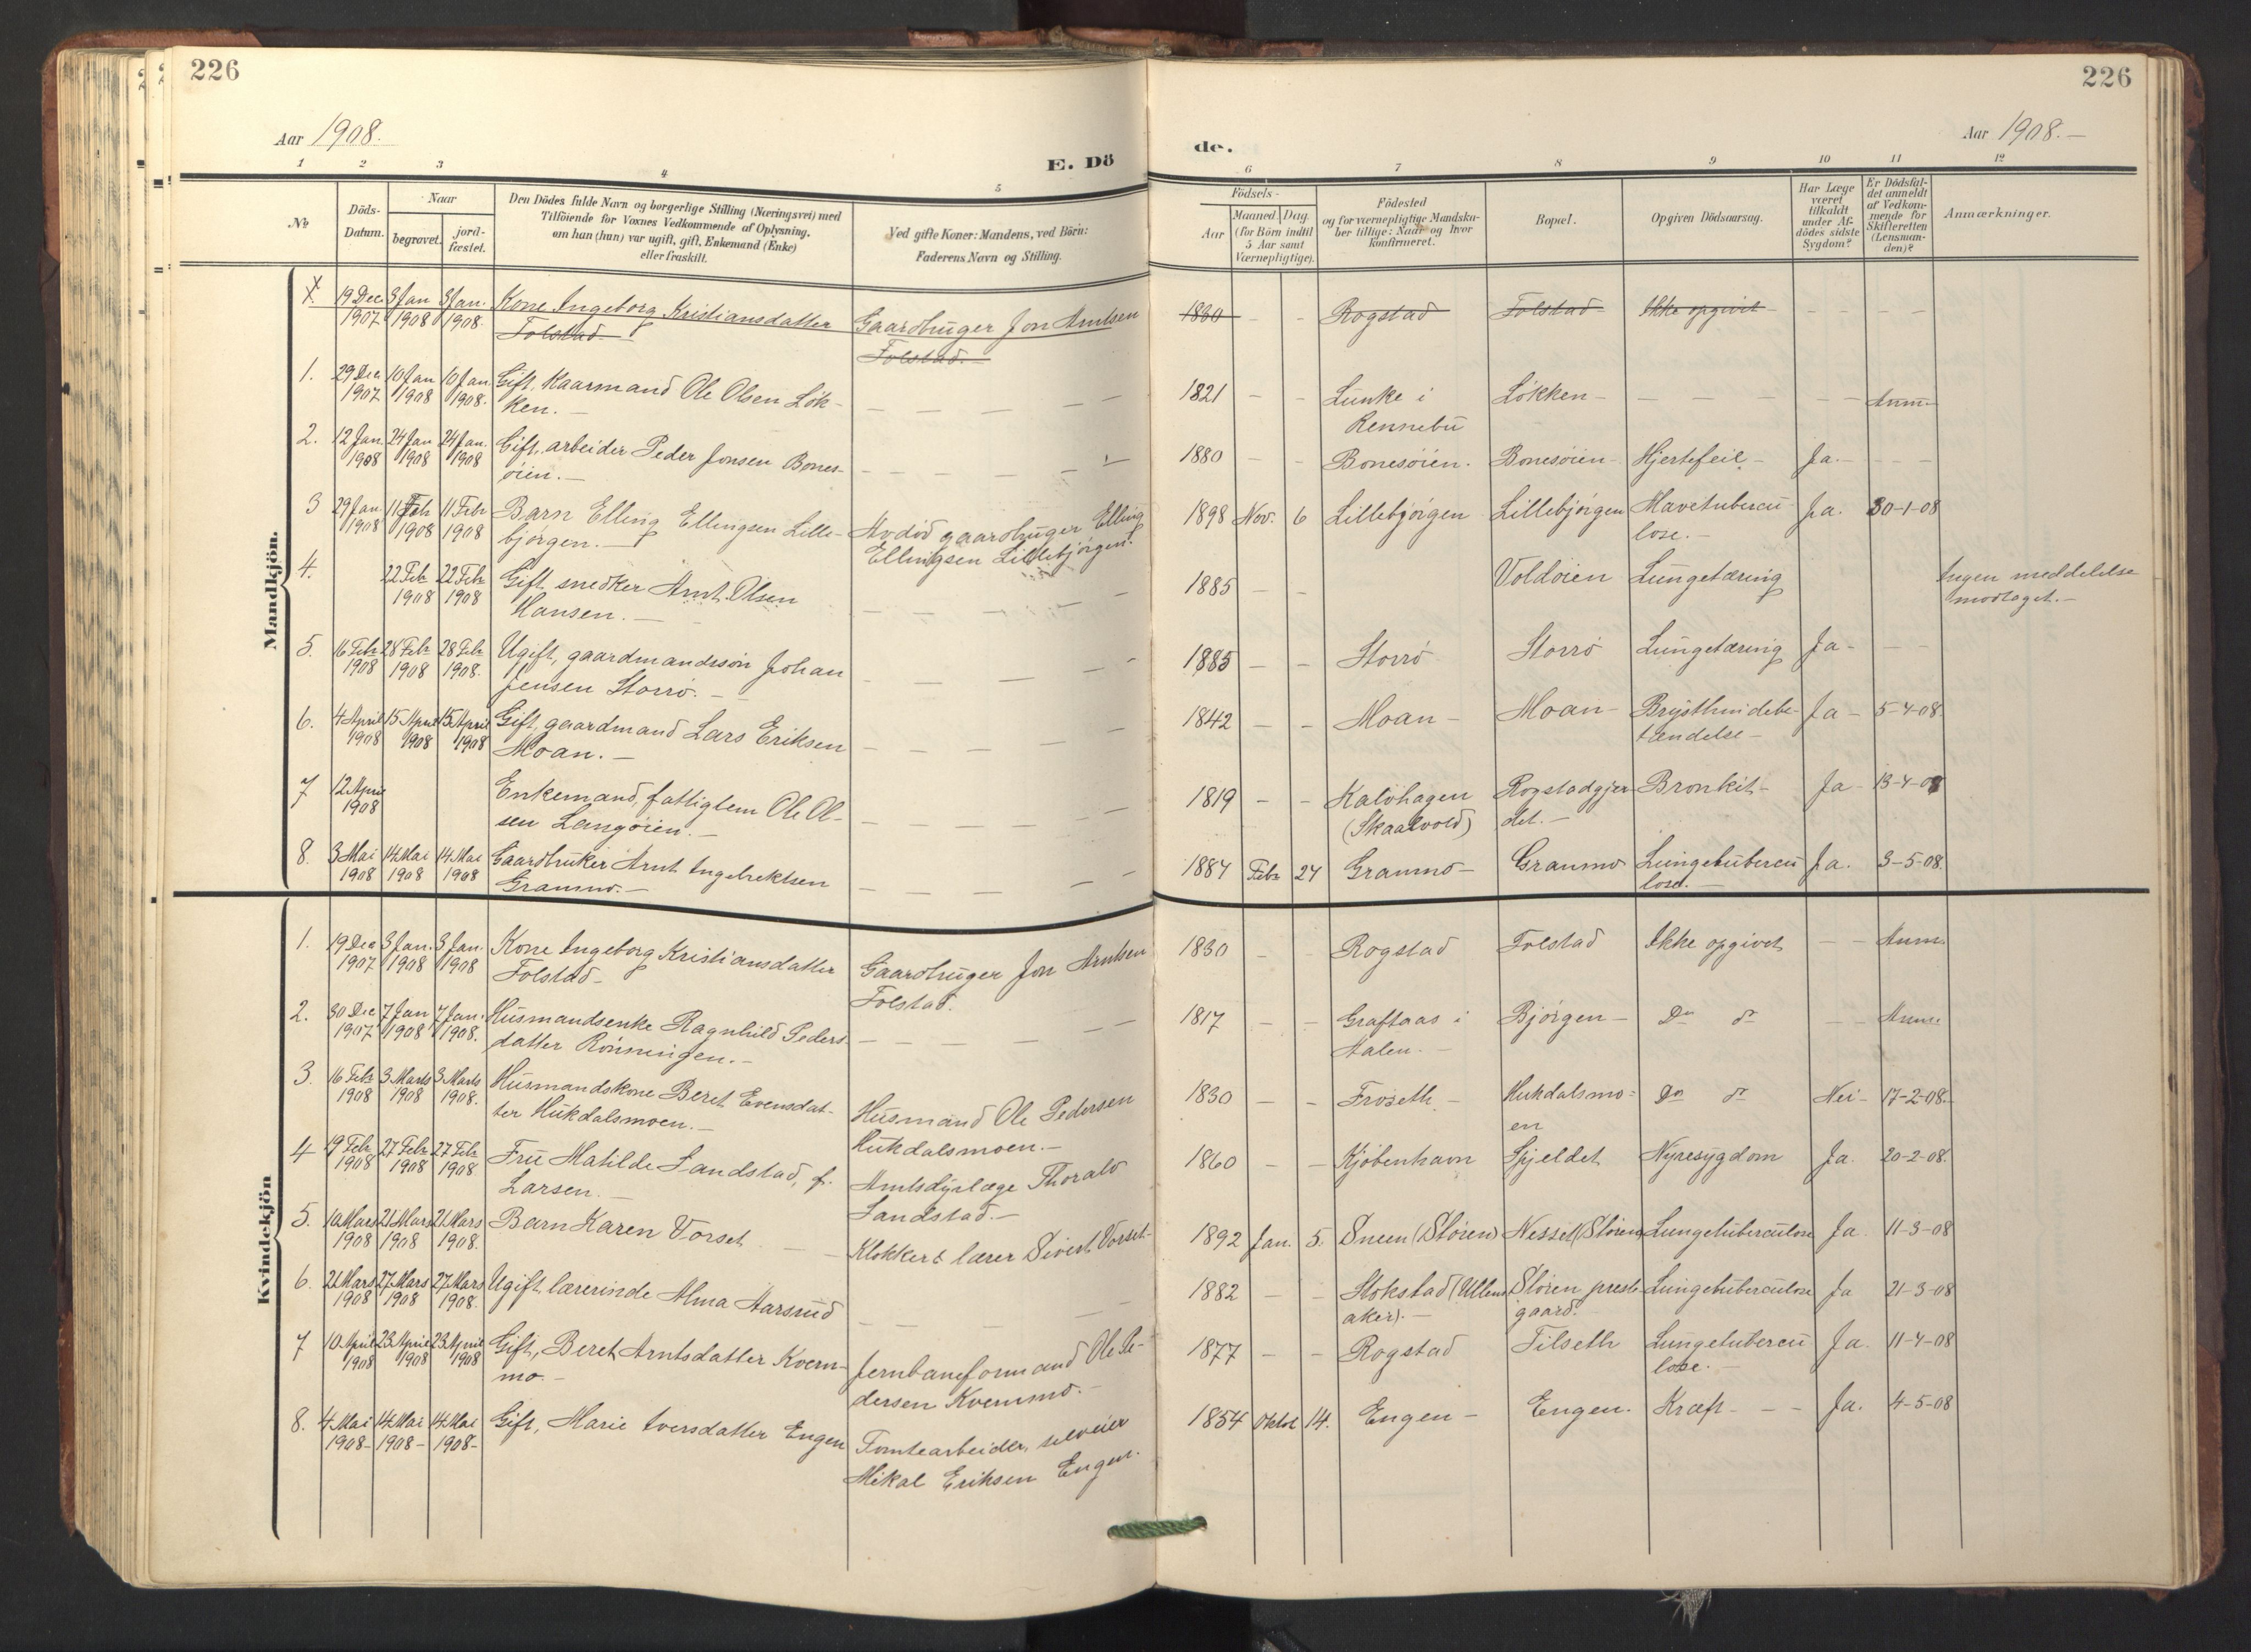 226
Aar 1908.
E. Dö
1 2 3 4 5
No
Döds-
Datum.
Naar
begravet.
jord-
fæstet.
Den Dödes fulde Navn og borgerlige Stilling (Næringsvei) med
Tilföiende for Voxnes Vedkommende af Oplysning,
om han (hun) var ugift, gift, Enkemand (Enke)
eller fraskilt.
Ved gifte Koner: Mandens, ved Börn:
Faderens Navn og Stilling.
226
de.
Aar 1908.-
6 7 8 9 10 11 12
Födsels-
Aar
Maaned. Dag.
(for Börn indtil
5 Aar samt
Værnepligtige).
Födested
og for værnepligtige Mandska-
ber tillige: Naar og hvor
konfirmeret.
Bopæl.
Opgiven Dödsaarsag.
Har Læge
været
tilkaldt
under Af-
dödes sidste
Sygdom?
Er Dödsfal-
det anmeldt
af Vedkom-
mende for
Skifteretten
(Lensman-
den)?
Anmærkninger.
Mandkjön.
19 Dec. 3 Jan 3 Jan. Kone Ingeborg Kristiansdatter Gaardbruger Jon Arntsen 1830 - - Rogstad Folstad Ikke opgivet - - - -
1907 1908 1908. Folstad - Folstad.
1. 29 Dec 10 Jan 10 Jan. Gift, Kaarmand Ole Olsen Løk- 1821 - - Lunke i Løkken - - - - - - Anm.
1907 1908 1908. ken. - Rennebu
2. 12 Jan. 24 Jan 24 Jan. Gift, arbeider Peder Jonsen Bones- 1880 - - Bonesøien. Bonesøien - Hjertefeil - Ja. - -
1908 1908 1908 øien. -
3 29 Jan. 11 Feb 11 Febr Barn Elling Ellingsen Lille- Avdød gaardbruger Elling 1898 Nov. 6 Lillebjørgen Lillebjørgen Mavetubercu Ja. 30-1-08
1908 1908 1908 bjørgen. - Ellingsen Lillebjørgen. lose. -
4. 22 Feb 22 Feb Gift, snedker Arnt Olsen 1885 - - Voldøien Lungetæring Ingen meddelelse
1908 1908 Hansen. - modtaget. -
5. 16 Feb 28 Feb 28 Feb Ugift, gaardmandssøn Johan 1885 - - Storrø Storrø Lungetæring Ja - - -
1908 1908 1908. Jensen Storrø. -
6. 4 April 15 April 15 April Gift gaardmand Lars Eriksen 1842 - - Moan - Moan - Brysthindebe- Ja - 5-4-08.
1908 1908 1908 Moan. - tændelse -
7 12 April Enkemand, fattiglem Ole Ol- 1819 - - Kalvhagen Rogstadgjer- Bronkit - Ja - 13-4-08
1908 sen Langøien. - (Skaalvold) det. -
8. 3 Mai 14 Mai 14 Mai Gaardbruker Arnt Ingebrektsen 1884 Febr 24 Granmo - Granmo Lungetubercu Ja. 3-5-08.
1908 1908 1908 Granmo. - lose. -
Kvindekjön
1. 19 Dec 3 Jan. 3 Jan. Kone Ingeborg Kristiansdatter Gaardbruger Jon Arntsen 1830 - Rogstad Folstad Ikke opgivet - - Anm.
1907 1908 1908 Folstad - Folstad.
2. 30 Dec 7 Jan 7 Jan. Husmandsenke Ragnhild Peders- 1817 - - Graftaas i Bjørgen - Do do - - Anm.
1907 1908 1908. datter Rønningen. - Aalen. -
3. 16 Feb 3 Marts 3 Marts Husmandskone Beret Evensdat- Husmand Ole Pedersen 1830 - - Frøseth - Hukdalsmo- Do do Nei - 17-2-08.
1908 1908 1908. ter Hukdalsmoen. - Hukdalsmoen. - en
4 19 Feb 27 Feb 27 Feb Fru Matilde Sandstad, f. Amtsdyrlæge Thorald 1860 - - Kjøbenhavn Spjeldet Nyresygdom Ja. 20-2-08.
1908 1908 1908 Larsen. - Sandstad. -
5. 10 Mars 21 Mars 21 Mars Barn Karen Vorset - - Klokker & lærer Sivert Vorset. 1892 Jan. 5. Sneen (Støren) Nesset (Støren) Lungetuberculose Ja. 11-3-08
1908 1908 1908.
6. 21 Mars 27 Mars 27 Mars Ugift lærerinde Alma Aarsrud 1882 - - Stokstad (Ullens Støren preste- Lungetuberculose Ja 21-3-08
1908 1908 1908. aker). - gaard.
7 10 April 23 April 23 April Gift, Beret Arntsdatter Kvern- Jernbaneformand Ole Pe- 1877 - - Rogstad Tilseth Lungetubercu Ja. 11-4-08
1908 1908 1908 mo. - dersen Kvernmo. - lose. -
8. 4. Mai 14. Mai 14. Mai Gift, Marie Iversdatter Engen Tomtearbeider, selveier 1854 Oktob 14. Engen - Engen. Kræft - - - Ja. 4-5-08
1908- 1908- 1908- Mikal Eriksen Engen.